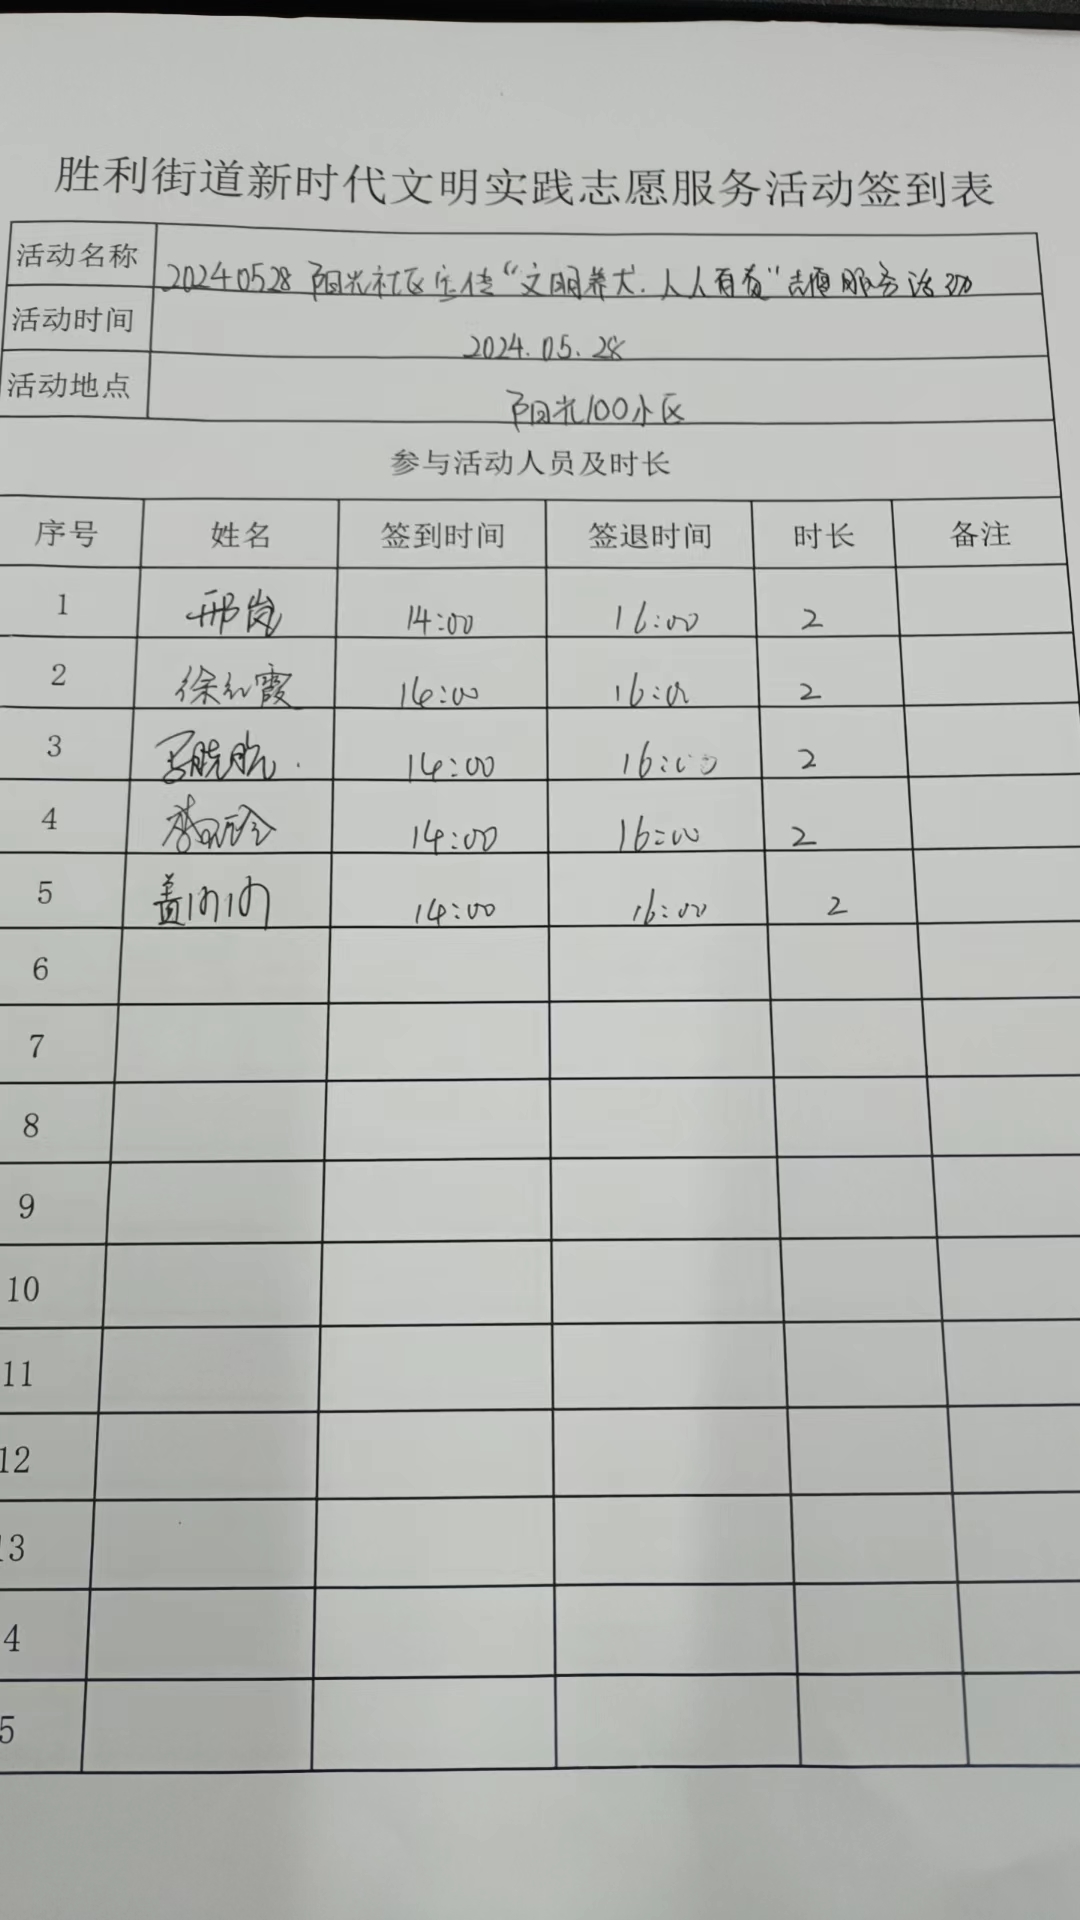 胜利街道新时代文明实践志愿服务活动签到表
活动名称 20240528 阳光社区宣传“文明养犬.人人有责”志愿服务活动
活动时间 2024.05.28
活动地点 阳光100小区
参与活动人员及时长
序号 姓名 签到时间 签退时间 时长 备注
1 邢岚 14:00 16:00 2
2 徐红霞 14:00 16:00 2
3 14:00 16:00 2
4 14:00 16:00 2
5 盖 14:00 16:00 2
6
7
8
9
10
11
12
13
4
5